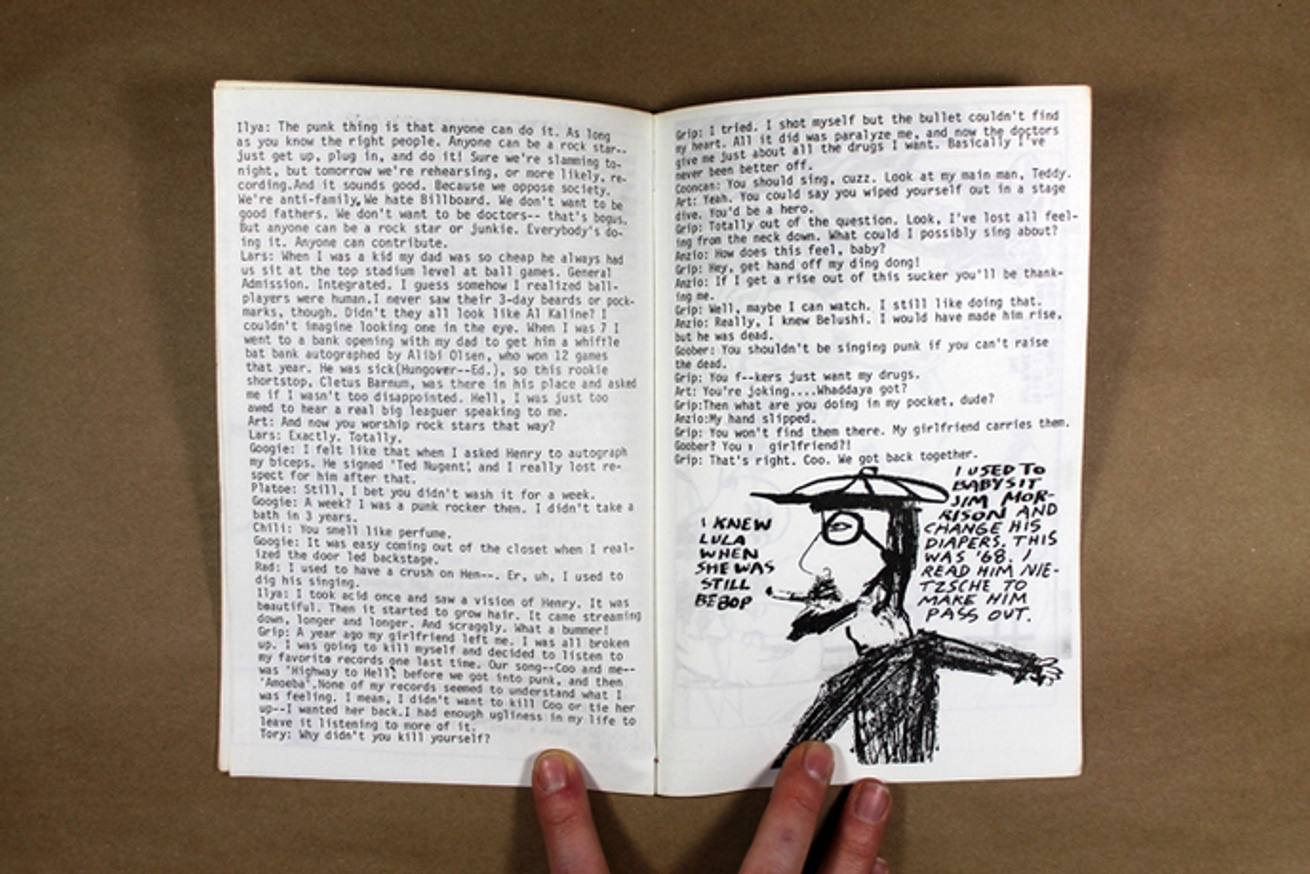 Ilya: The punk thing is that anyone can do it. As long
as you know the right people. Anyone can be a rock star--
just get up, plug in, and do it! Sure we're slamming to-
night, but tomorrow we're rehearsing, or more likely, re-
cording.And it sounds good. Because we oppose society.
We're anti-family,We hate Billboard. We don't want to be
good fathers. We don't want to be doctors-- that's bogus.
But anyone can be a rock star or junkie. Everybody's do-
ing it. Anyone can contribute.
Lars: When I was a kid my dad was so cheap he always had
us sit at the top stadium level at ball games. General
Admission. Integrated. I guess somehow I realized ball-
players were human.I never saw their 3-day beards or pock-
marks, though. Didn't they all look like Al Kaline? I
couldn't imagine looking one in the eye. When I was 7 I
went to a bank opening with my dad to get him a whiffle
bat bank autographed by Alibi Olsen, who won 12 games
that year. He was sick(Hungover--Ed.), so this rookie
shortstop, Cletus Barnum, was there in his place and asked
me if I wasn't too disappointed. Hell, I was just too
awed to hear a real big leaguer speaking to me.
Art: And now you worship rock stars that way?
Lars: Exactly. Totally.
Googie: I felt like that when I asked Henry to autograph
my biceps. He signed 'Ted Nugent', and I really lost re-
spect for him after that.
Platoe: Still, I bet you didn't wash it for a week.
Googie: A week? I was a punk rocker then. I didn't take a
bath in 3 years.
Chili: You smell like perfume.
Googie: It was easy coming out of the closet when I real-
ized the door led backstage.
Rad: I used to have a crush on Hen--. Er, uh, I used to
dig his singing.
Ilya: I took acid once and saw a vision of Henry. It was
beautiful. Then it started to grow hair. It came streaming
down, longer and longer. And scraggly. What a bummer!
Grip: A year ago my girlfriend left me. I was all broken
up. I was going to kill myself and decided to listen to
my favorite records one last time. Our song--Coo and me--
was 'Highway to Hell', before we got into punk, and then
'Amoeba'.None of my records seemed to understand what I
was feeling. I mean, I didn't want to kill Coo or tie her
up--I wanted her back.I had enough ugliness in my life to
leave it listening to more of it.
Tory: Why didn't you kill yourself?
Grip: I tried. I shot myself but the bullet couldn't find
my heart. All it did was paralyze me, and now the doctors
give me just about all the drugs I want. Basically I've
never been better off.
Cooncan: You should sing, cuzz. Look at my main man, Teddy.
Art: Yeah. You could say you wiped yourself out in a stage
dive. You'd be a hero.
Grip: Totally out of the question. Look, I've lost all feel-
ing from the neck down. What could I possibly sing about?
Anzio: How does this feel, baby?
Grip: Hey, get hand off my ding dong!
Anzio: If I get a rise out of this sucker you'll be thank-
ing me.
Grip: Well, maybe I can watch. I still like doing that.
Anzio: Really, I knew Belushi. I would have made him rise,
but he was dead.
Goober: You shouldn't be singing punk if you can't raise
the dead.
Grip: You f--kers just want my drugs.
Art: You're joking....Whaddaya got?
Grip:Then what are you doing in my pocket, dude?
Anzio:My hand slipped.
Grip: You won't find them there. My girlfriend carries them.
Goober? You girlfriend?!
Grip: That's right. Coo. We got back together.
I KNEW
LULA
WHEN
SHE WAS
STILL
BEBOP
I USED TO
BABYSIT
JIM MOR-
RISON AND
CHANGE HIS
DIAPERS. THIS
WAS '68. I
READ HIM NIE-
TZSCHE TO
MAKE HIM
PASS OUT.